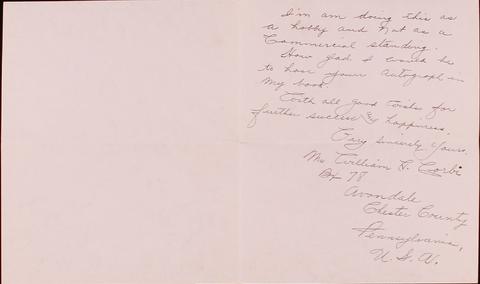 I'm am doing this as
a hobby and not as a
Commercial standing.
How glad I would be
to have your autograph in
my book.
With all good wishes for
further success & happiness.
Very Sincerely Yours.
Mr. William H. Corbi
Bx 78
Avondale
Chester County
Pennsylvania,
U. S. A.